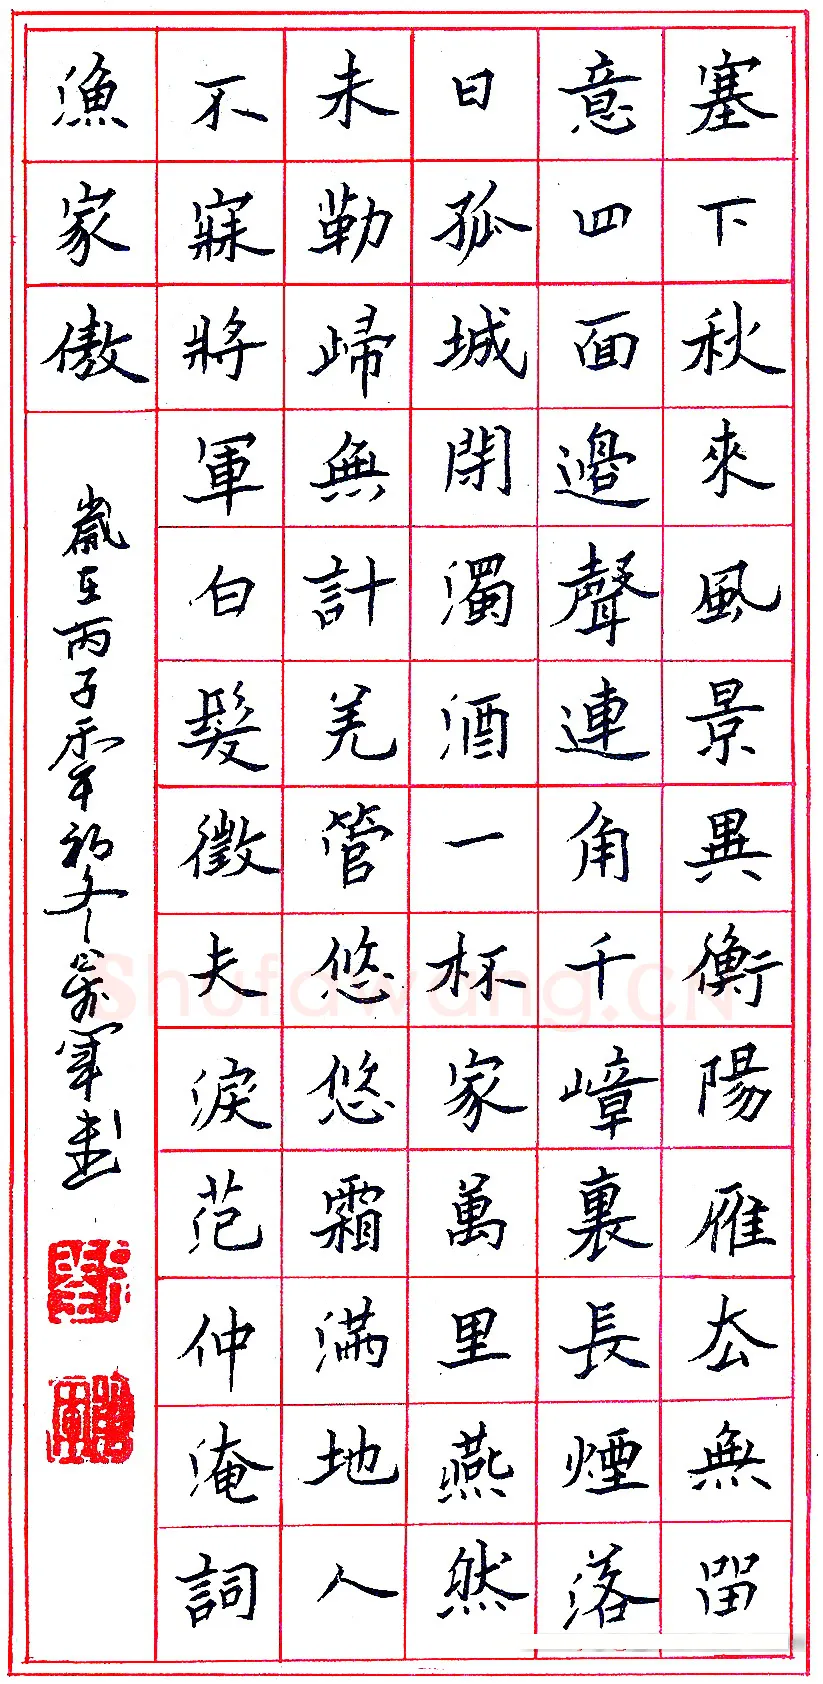 塞下秋來風景異衡陽雁去無留
意四面邊聲連角千嶂裏長煙落
日孤城閉濁酒一杯家萬里燕然
未勒歸無計羌管悠悠霜滿地人
不寐將軍白髮徵夫淚范仲淹詞
漁家傲
歲在丙子年初冬萬軍書
Shufawang.CN